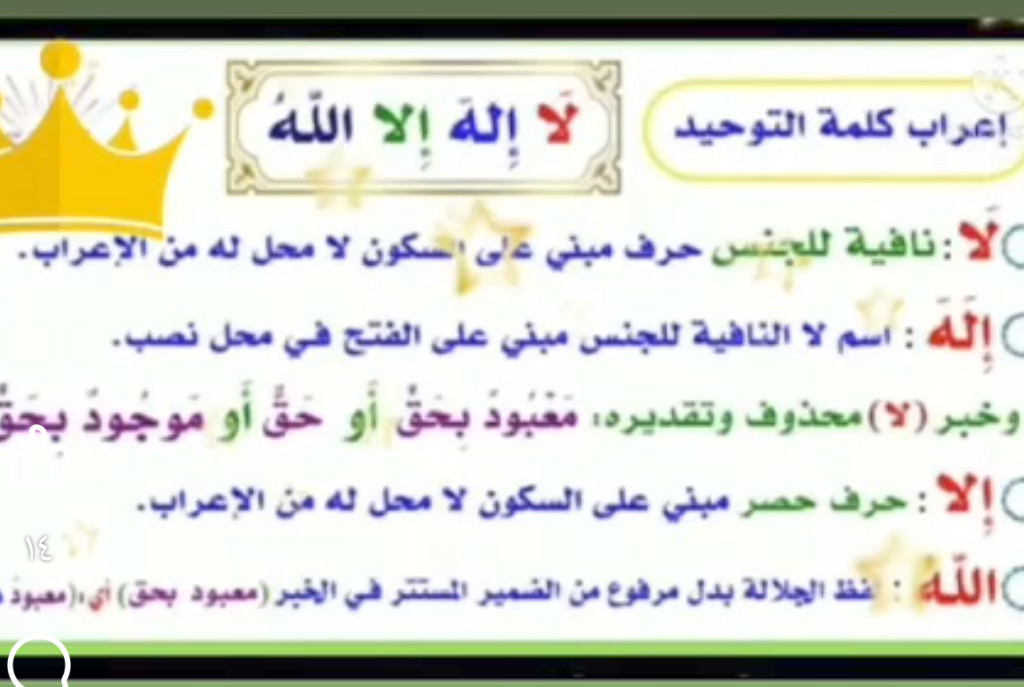 إعراب كلمة التوحيد
لَا إِلهَ إِلا اللّهُ
لَا : نافية للجنس حرف مبني على السكون لا محل له من الإعراب.
إِلَهَ : اسم لا النافية للجنس مبني على الفتح في محل نصب.
وخبر (لا) محذوف وتقديره: مَعْبُودٌ بِحَقٌّ أَو حَقٌّ أَو مَوجُودٌ بِحَقٌّ
إِلا : حرف حصر مبني على السكون لا محل له من الإعراب.
١٤
اللّهُ : لفظ الجلالة بدل مرفوع من الضمير المستتر في الخبر (معبود بحق) أي،(معبودٌ